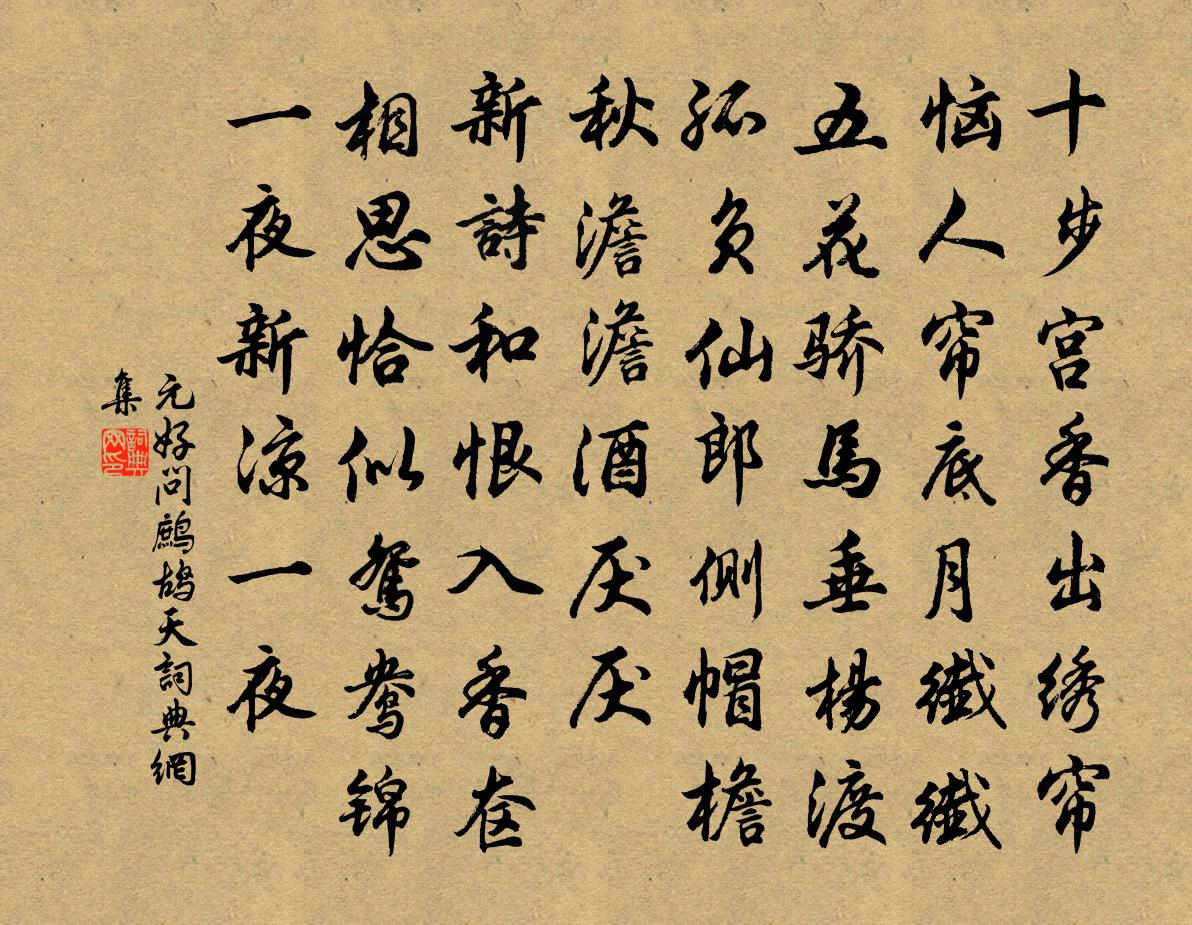 十步宫香出绣帘
恼人帘底月纖纖
五花骄馬垂楊渡
孤负仙郎侧帽檐
秋澹澹酒厌厌
新詩和恨入香奁
相思恰似鴛鴦锦
一夜新涼一夜
元好问鷓鴣天詞典網
集
詞典网印